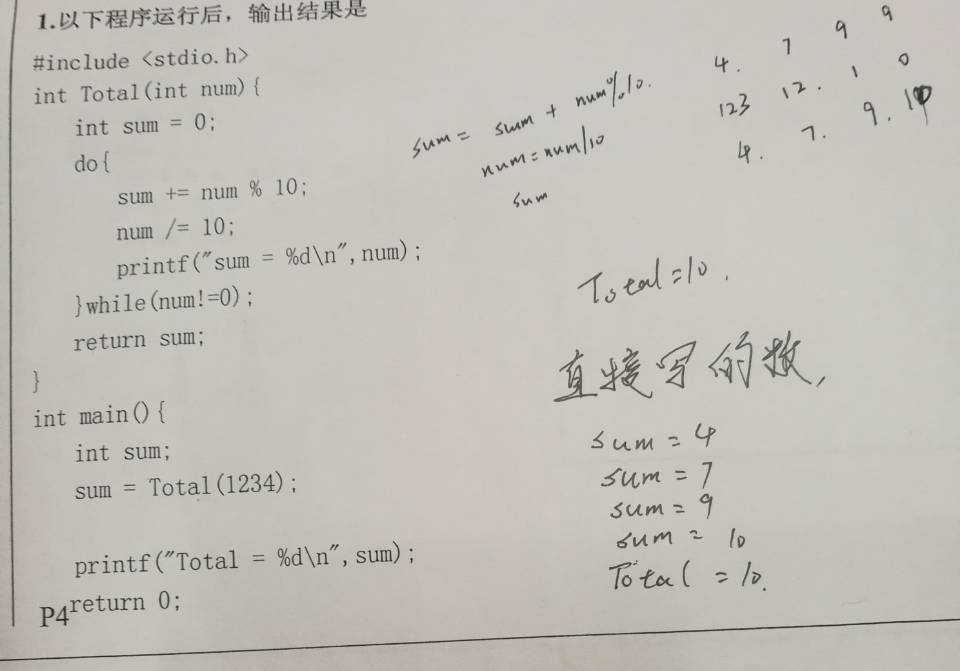 1.以下程序运行后，输出结果是
#include <stdio.h>
int Total(int num){
int sum = 0;
do{
sum += num % 10;
num /= 10;
printf("sum = %d\n",num);
}while(num!=0);
return sum;
}
int main(){
int sum;
sum = Total(1234);
printf("Total = %d\n",sum);
P4return 0;
sum = sum + num%10.
num=num/10
sum
4. 7 9 9
123 12. 1 0
4. 7. 9. 10
Total=10.
直接写的数,
sum = 4
sum = 7
sum = 9
sum = 10
Total = 10.